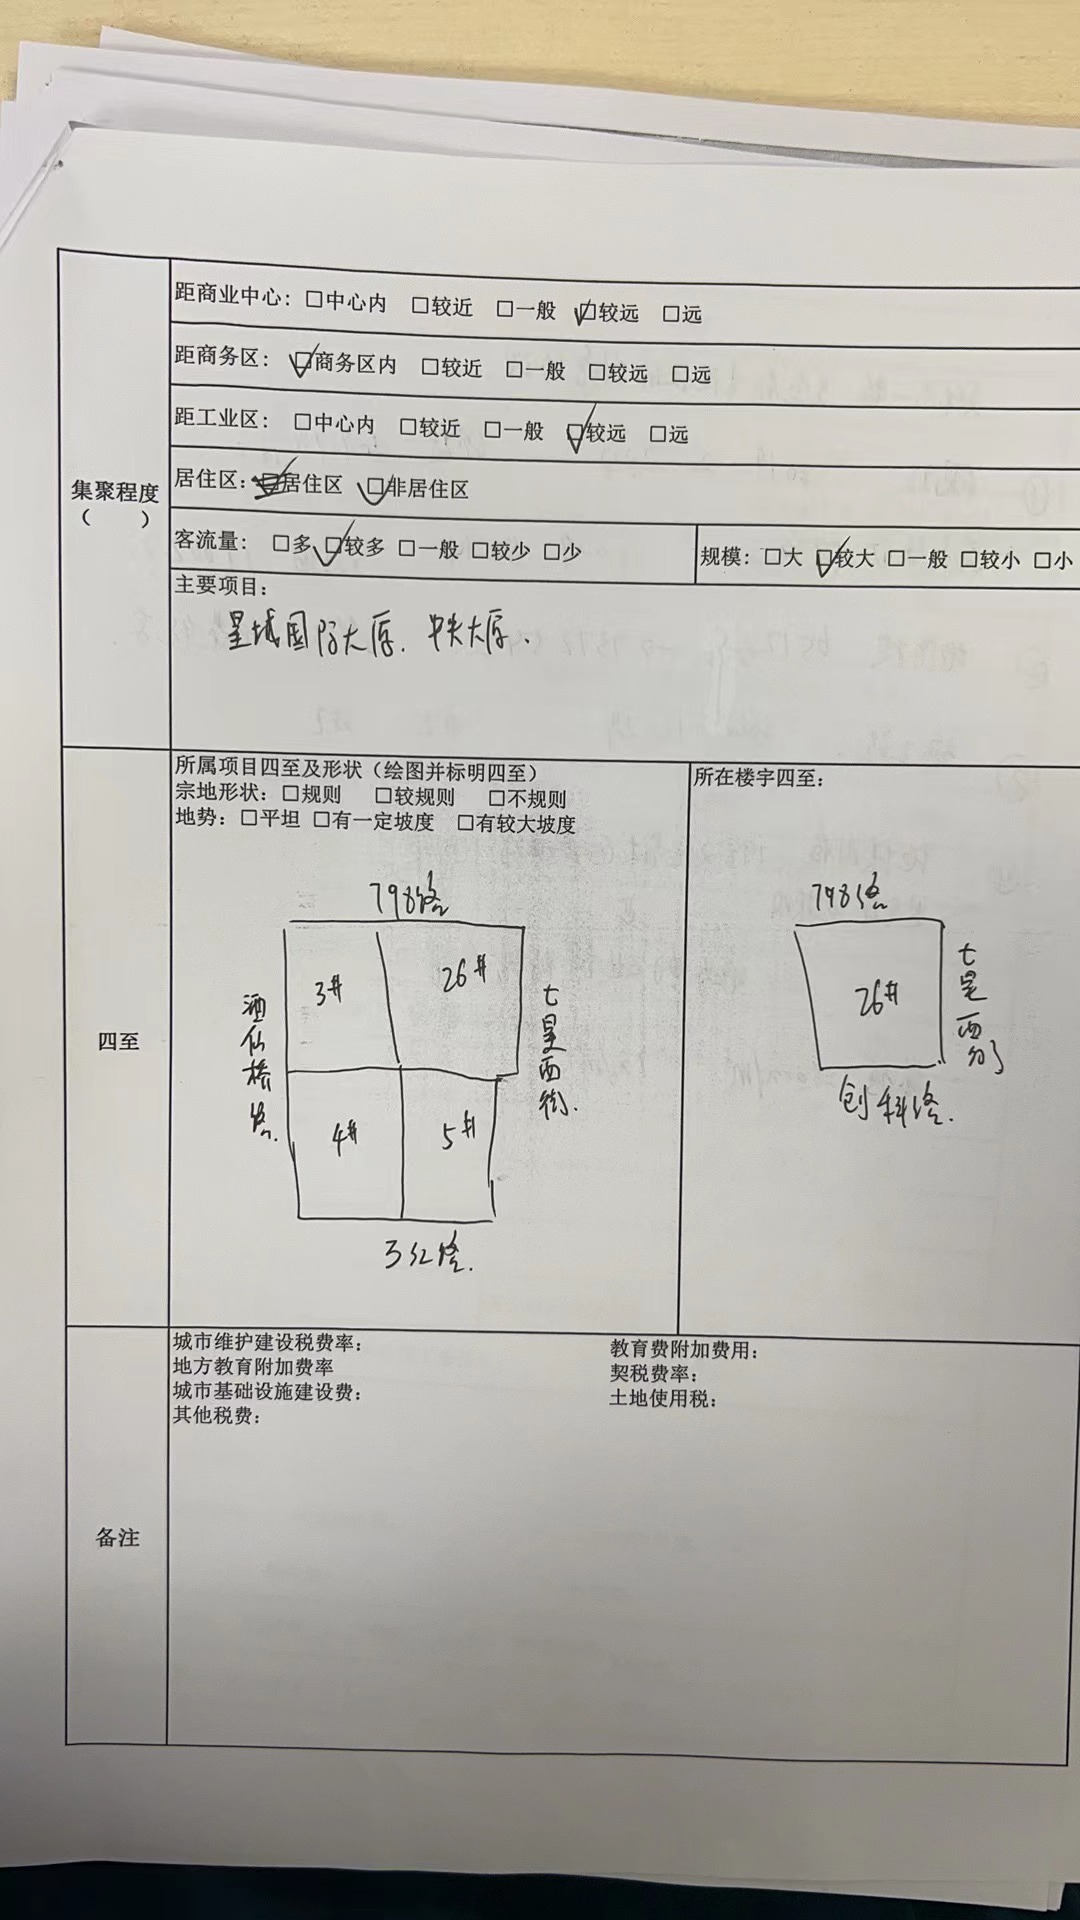 集聚程度
（ ）
距商业中心：□中心内 □较近 □一般 ☑较远 □远
距商务区：☑商务区内 □较近 □一般 □较远 □远
距工业区：□中心内 □较近 □一般 ☑较远 □远
居住区：□居住区 ☑非居住区
客流量：□多 ☑较多 □一般 □较少 □少
规模：□大 ☑较大 □一般 □较小 □小
主要项目：
星城国际大厦、中央大厦、
四至
所属项目四至及形状（绘图并标明四至）
宗地形状：□规则 □较规则 □不规则
地势：□平坦 □有一定坡度 □有较大坡度
798路
3#
26#
酒仙桥路.
七星西街.
4#
5#
万红路.
所在楼宇四至：
798路
26#
七星西街
创科路.
备注
城市维护建设税费率：
教育费附加费用：
地方教育附加费率
契税费率：
城市基础设施建设费：
土地使用税：
其他税费：